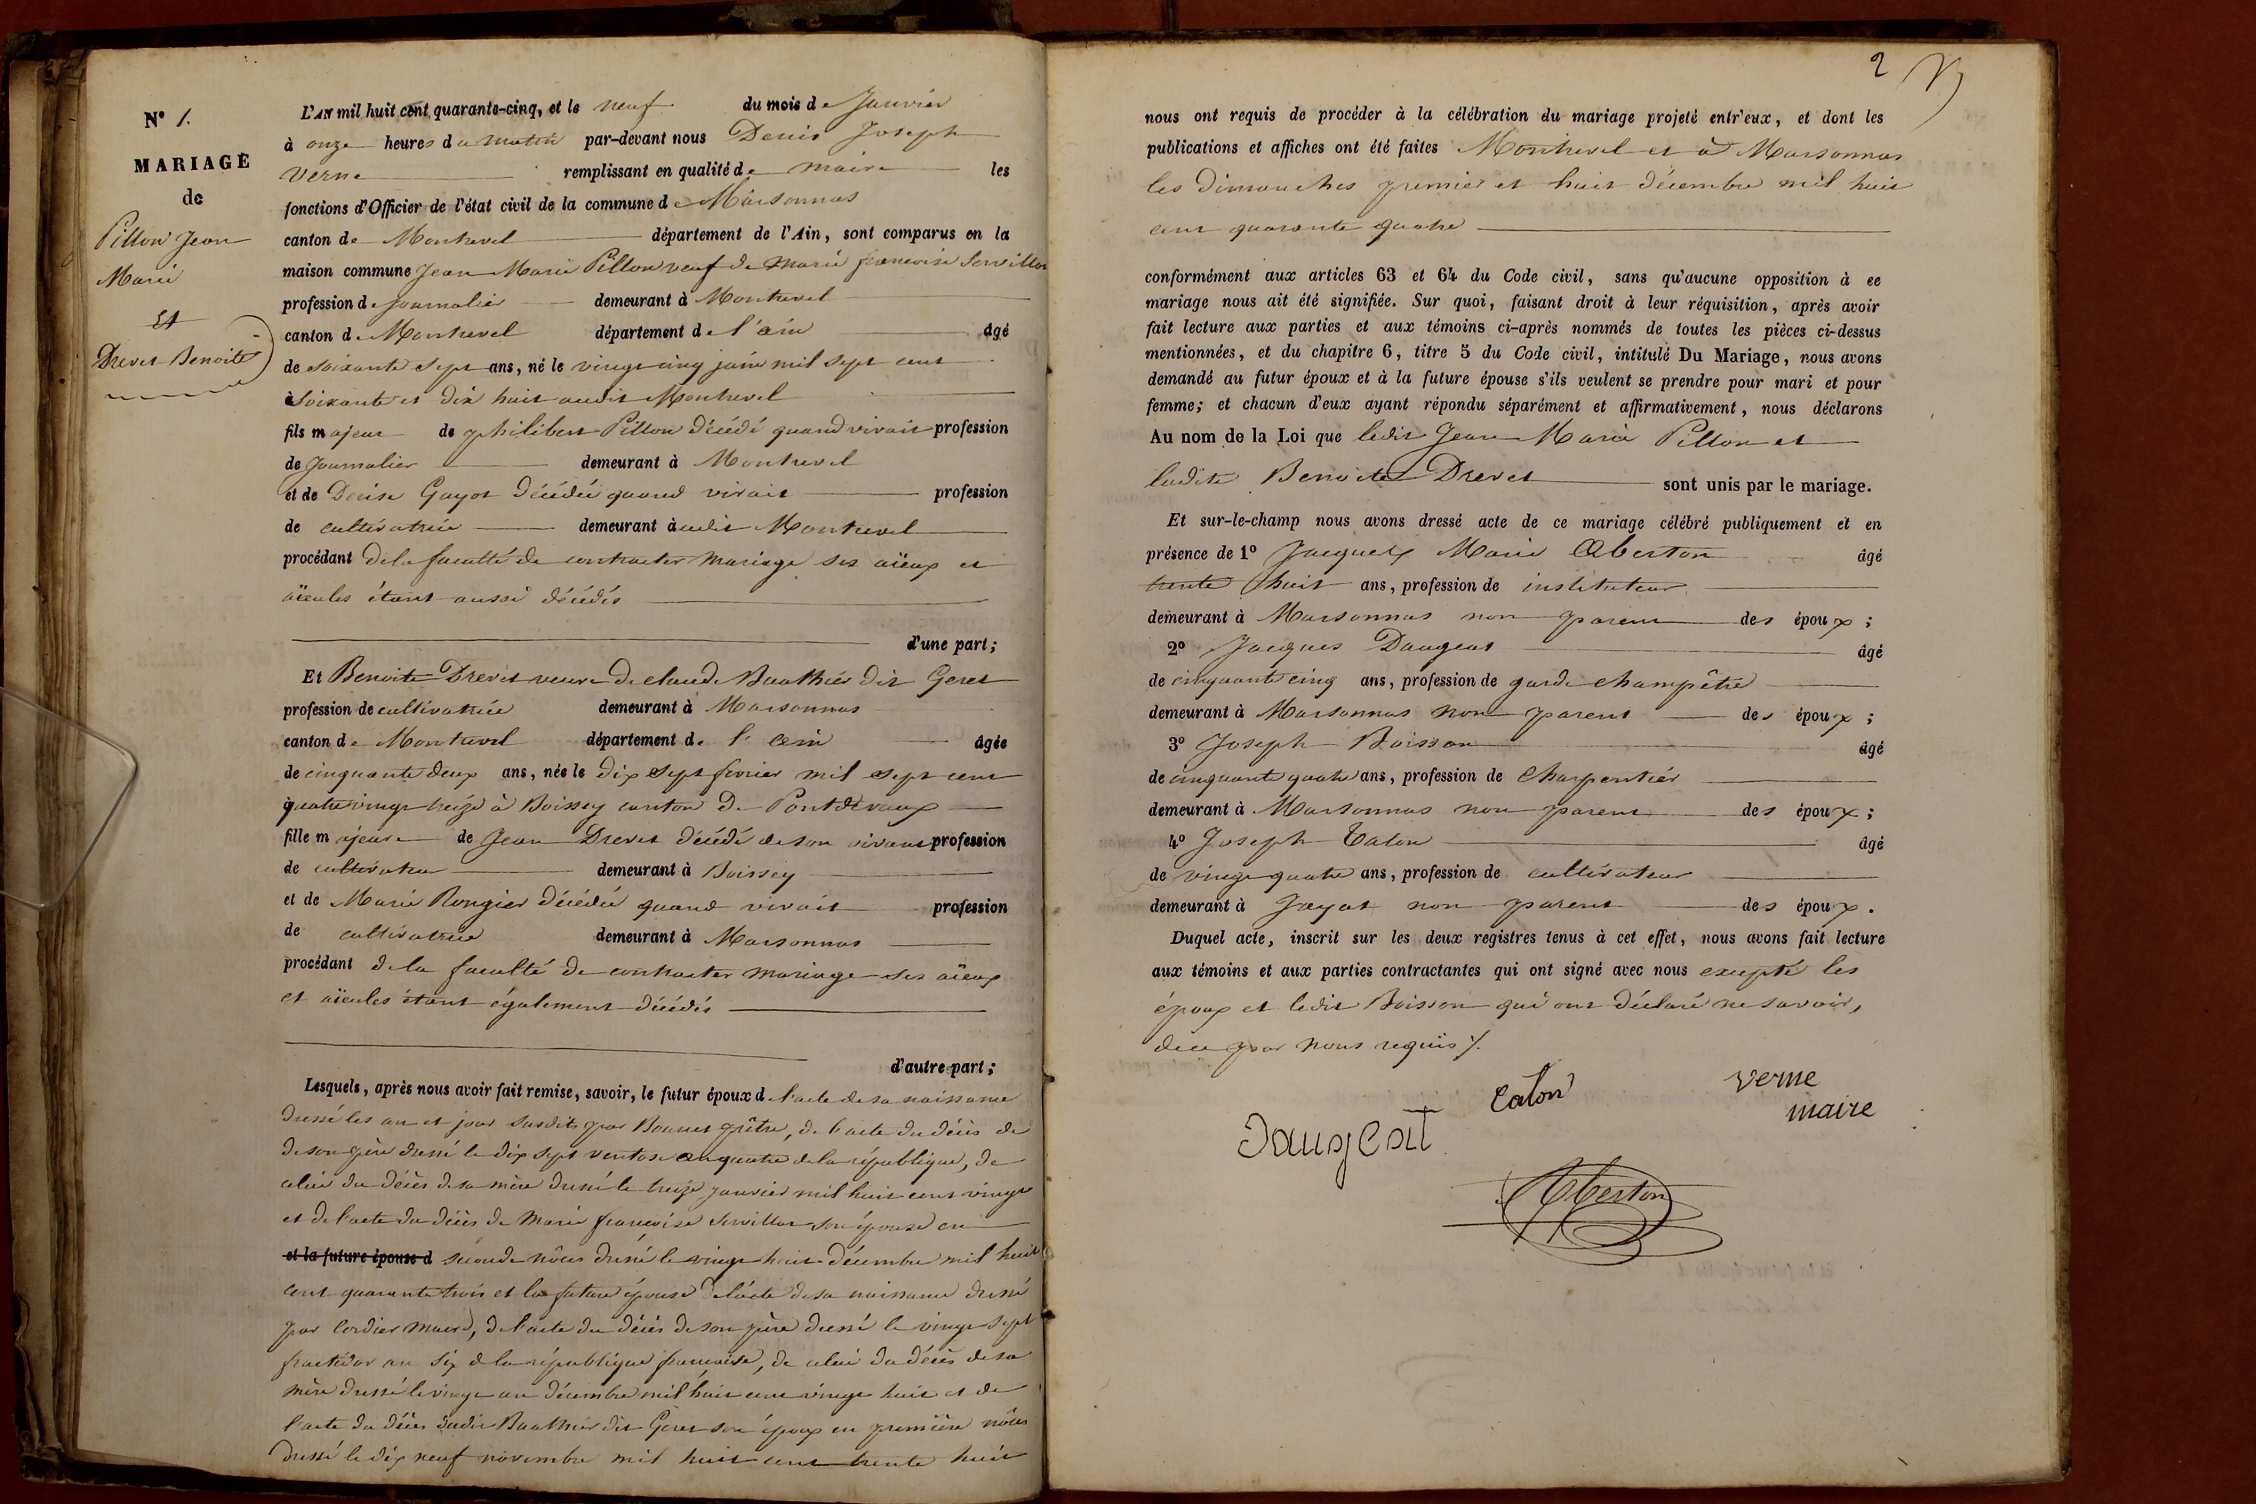 N° 1.
MARIAGE
de
Pillon Jean
Marie
Et
Drevet Benoite
L'AN mil huit cent quarante-cinq, et le neuf du mois de Janvier
à onze heures du matin par-devant nous Denis Joseph
Verne remplissant en qualité de maire les
fonctions d'Officier de l'état civil de la commune de Marsonnas
canton de Montrevel département de l'Ain, sont comparus en la
maison commune Jean Marie Pillon veuf de Marie francoise Servillat
profession de Journalier demeurant à Montrevel
canton de Montrevel département de l'ain âgé
de soixante sept ans, né le vingt cinq juin mil sept cent
soixante et dix huit audit Montrevel
fils majeur de philibert Pillon décédé quand vivait profession
de Journalier demeurant à Montrevel
et de Denise Gayot décédée quand vivait profession
de cultivatrice demeurant audit Montrevel
procédant de la faculté de contracter mariage ses aïeux et
aïeules étant aussi décédés
d'une part;
Et Benoite Drevet veuve de claude Buathier dit Geret
profession de cultivatrice demeurant à Marsonnas
canton de Montrevel département de l'ain âgée
de cinquante deux ans, née le dix sept fevrier mil sept cent
quatrevingt treize à Boissey canton de Pontdevaux
fille majeure de Jean Drevet décédé de son vivant profession
de cultivateur demeurant à Boissey
et de Marie Rongier décédée quand vivait profession
de cultivatrice demeurant à Marsonnas
procédant de la faculté de contracter mariage ses aïeux
et aïeules étant également décédés
d'autre part;
Lesquels, après nous avoir fait remise, savoir, le futur époux de l'acte de sa naissance
dressé les an et jour susdits par Bonnet prêtre, de l'acte du décès de
de son père dressé le dix sept ventose an quatre de la république, de
celui du décès de sa mère dressé le treize janvier mil huit cent vingt
et de l'acte du décès de Marie françoise Servillat son épouse en
et la future épouse d seconde nôces dressé le vingt huit décembre mil huit
cent quarante trois et la future épouse de l'acte de sa naissance dressé
par Cordier maire, de l'acte du décès de son père dressé le vingt sept
fructidor an six de la république francaise, de celui du décès de sa
mère dressé le vingt un décembre mil huit cent vingt huit et de
l'acte du décès dudit Buathier dit Geret son époux en première nôces
dressé le dix neuf novembre mil huit cent trente huit
2
nous ont requis de procéder à la célébration du mariage projeté entr'eux, et dont les
publications et affiches ont été faites Montrevel et à Marsonnas
les dimanches premier et huit décembre mil huit
cent quarante quatre
conformément aux articles 63 et 64 du Code civil, sans qu'aucune opposition à ce
mariage nous ait été signifiée. Sur quoi, faisant droit à leur réquisition, après avoir
fait lecture aux parties et aux témoins ci-après nommés de toutes les pièces ci-dessus
mentionnées, et du chapitre 6, titre 5 du Code civil, intitulé Du Mariage, nous avons
demandé au futur époux et à la future épouse s'ils veulent se prendre pour mari et pour
femme; et chacun d'eux ayant répondu séparément et affirmativement, nous déclarons
Au nom de la Loi que ledit Jean Marie Pillon et
ladite Benoite Drevet sont unis par le mariage.
Et sur-le-champ nous avons dressé acte de ce mariage célébré publiquement et en
présence de 1° Jacques Marie Alberton âgé
trente huit ans, profession de instituteur
demeurant à Marsonnas non parent des époux;
2° Jacques Daugeat âgé
de cinquante cinq ans, profession de garde champêtre
demeurant à Marsonnas non parent des époux;
3° Joseph Boisson âgé
de cinquante quatre ans, profession de charpentier
demeurant à Marsonnas non parent des époux;
4° Joseph Caton âgé
de vingt quatre ans, profession de cultivateur
demeurant à Jayat non parent des époux.
Duquel acte, inscrit sur les deux registres tenus à cet effet, nous avons fait lecture
aux témoins et aux parties contractantes qui ont signé avec nous excepté les
époux et ledit Boisson qui ont déclaré ne savoir,
de ce par nous requis /.
Caton
Verne
maire
Daugeat
Alberton